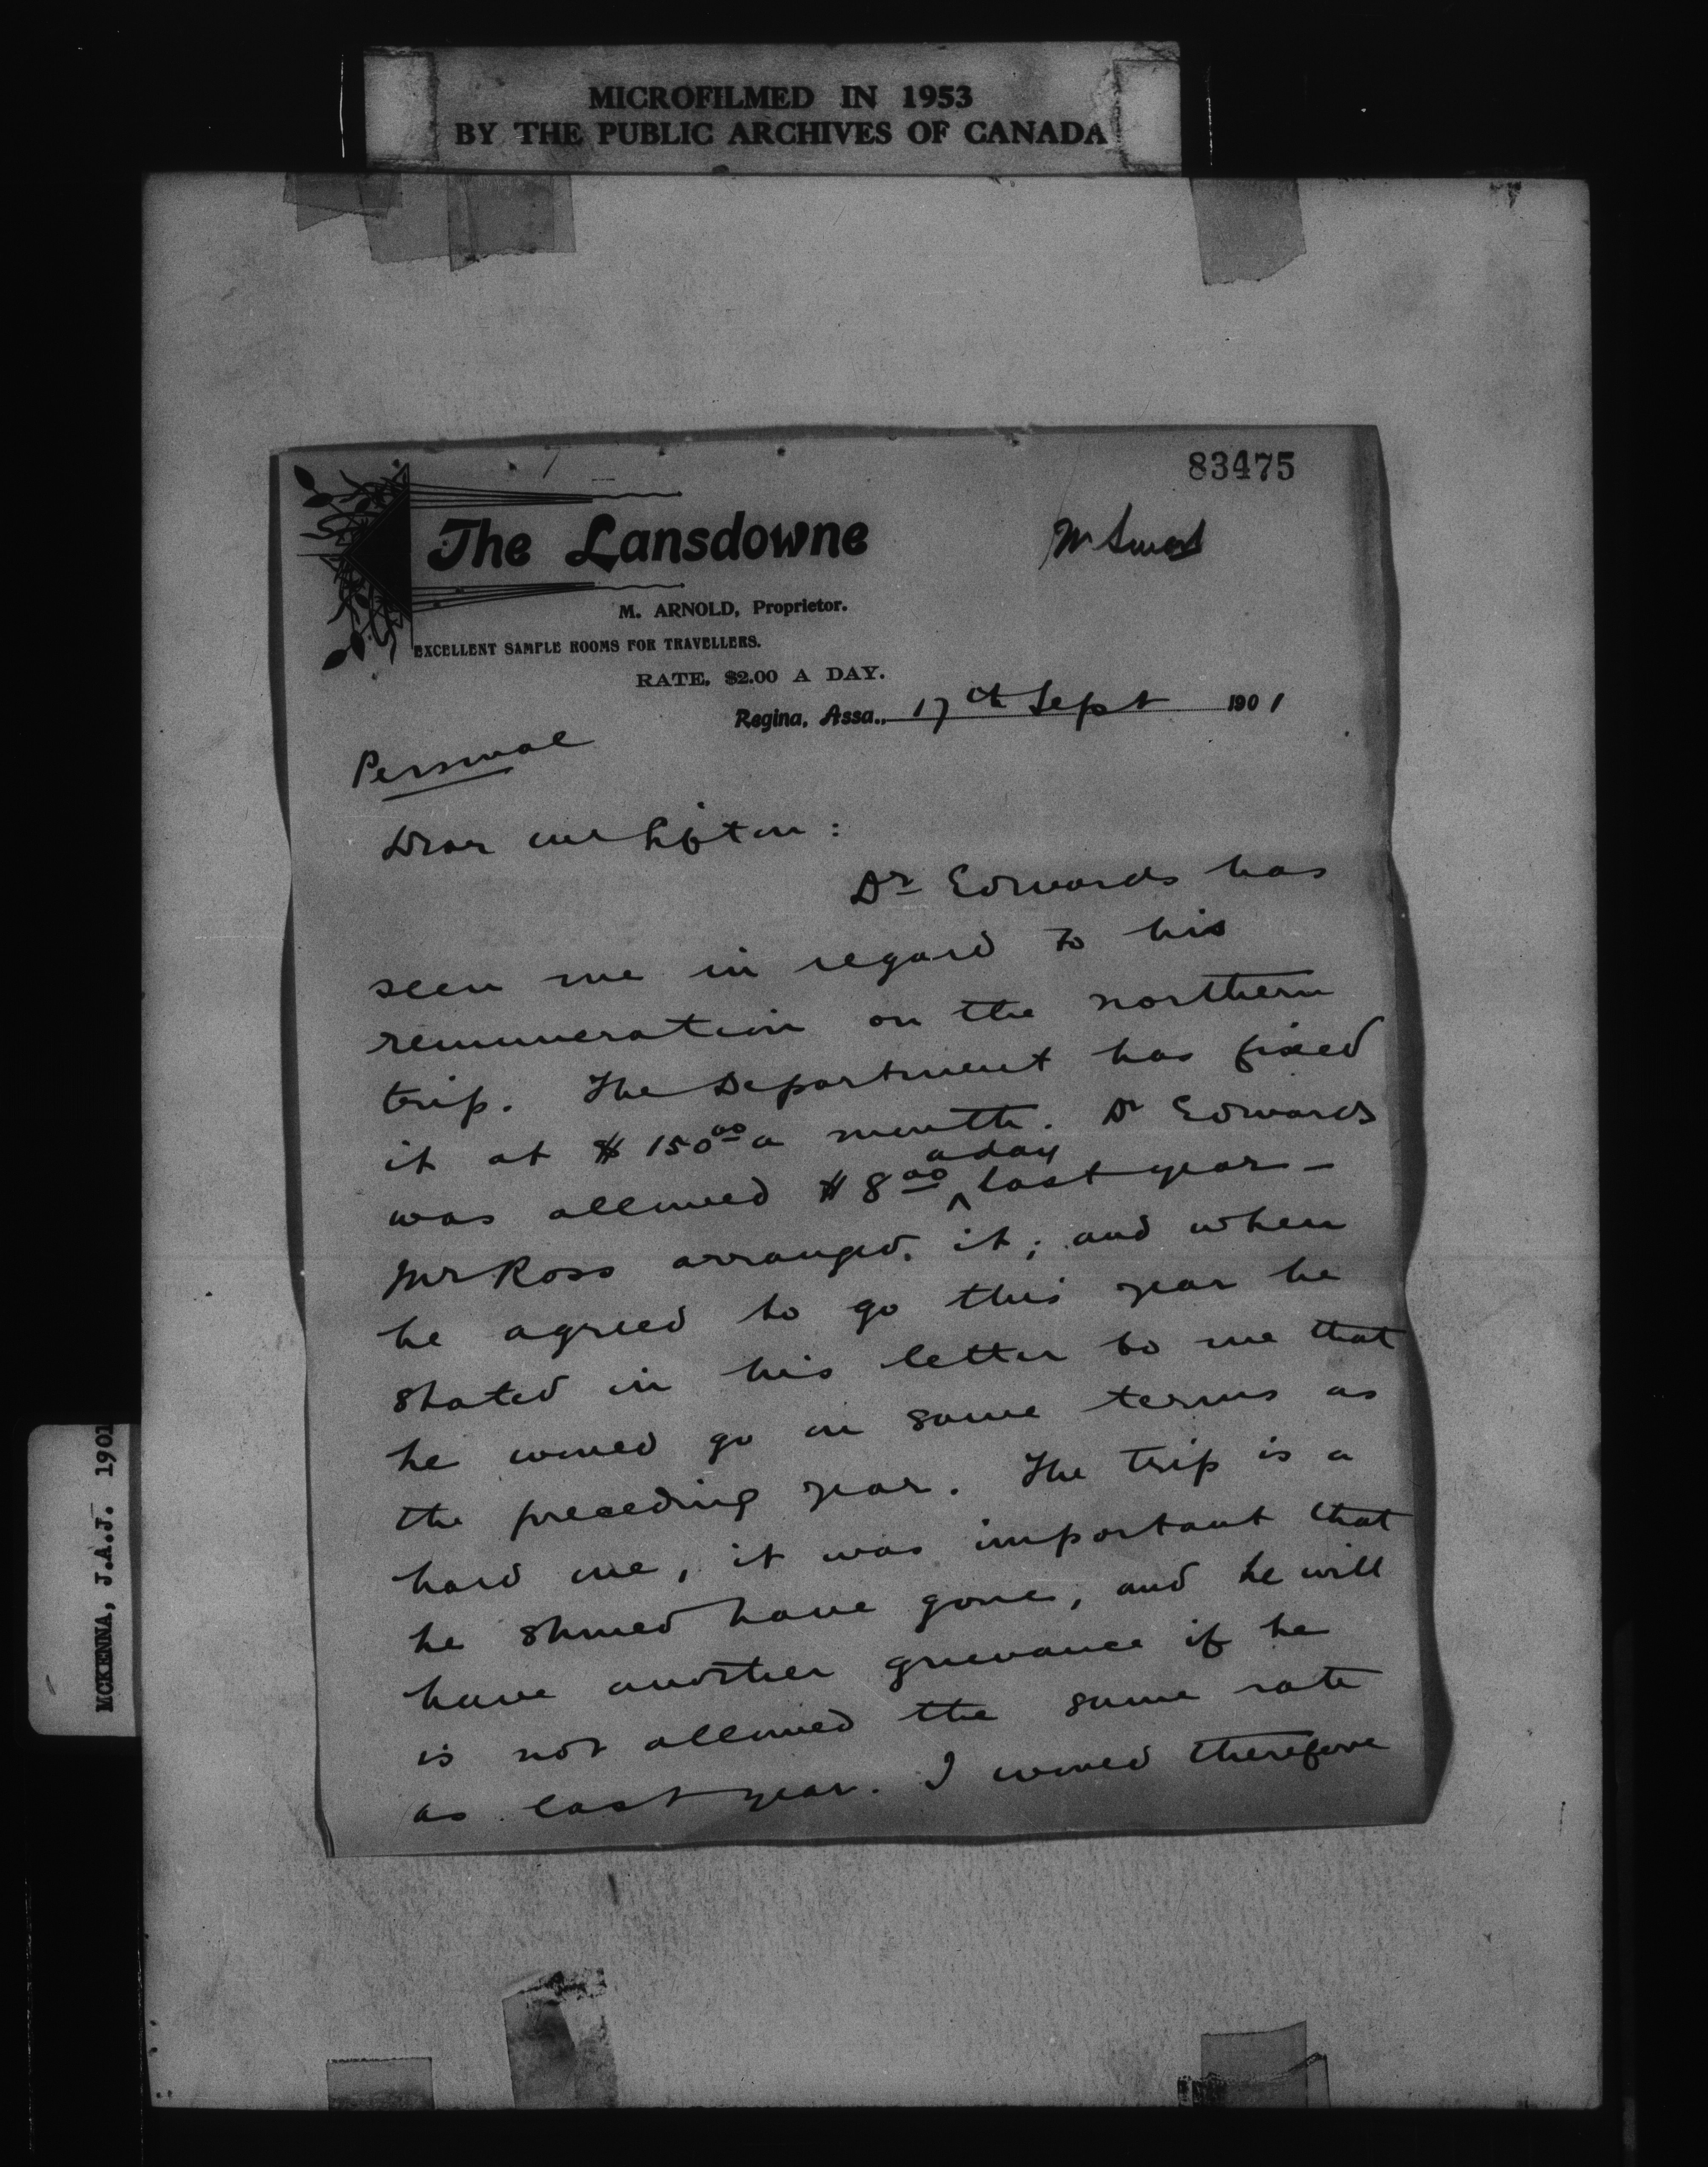 MICROFILMED IN 1953
BY THE PUBLIC ARCHIVES OF CANADA
83475
The Lansdowne
Mr Smart
M. ARNOLD, Proprietor.
EXCELLENT SAMPLE ROOMS FOR TRAVELLERS.
RATE, $2.00 A DAY.
Regina, Assa., 17th Sept 1901
Personal
Dear Mr Sifton:
Dr Edwards has
seen me in regard to his
remuneration on the northern
trip. The Department has fixed
it at $150.00 a month. Dr Edwards
was allowed $8.00 a day last year —
Mr Ross arranged it; and when
he agreed to go this year he
stated in his letter to me that
he would go on same terms as
the preceding year. The trip is a
hard one, it was important that
he should have gone, and he will
have another grievance if he
is not allowed the same rate
as last year. I would therefore
MCKENNA, J.A.J. 1901